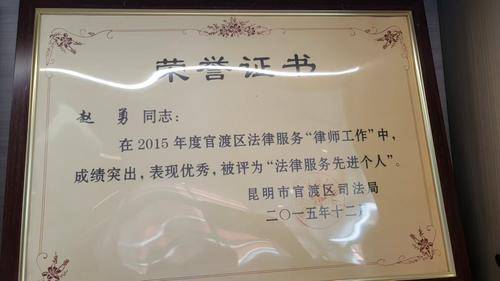 荣誉证书
赵勇同志：
在2015年度官渡区法律服务“律师工作”中，
成绩突出，表现优秀，被评为“法律服务先进个人”。
昆明市官渡区司法局
二〇一五年十二月